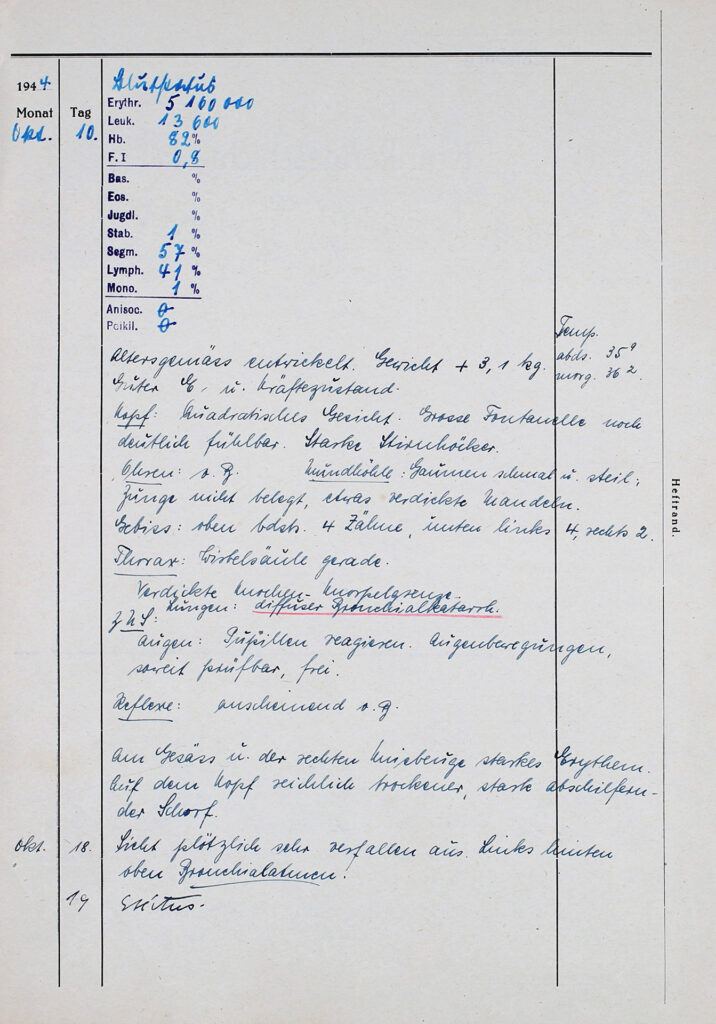 1944
Monat Tag
Okt. 10.
Blutstatus
Erythr. 5 160 000
Leuk. 13 600
Hb. 82 %
F. I 0,8
Bas. %
Eos. %
Jugdl. %
Stab. 1 %
Segm. 57 %
Lymph. 41 %
Mono. 1 %
Anisoc. 0
Poikil. 0
Temp.
abds. 35⁹
morg. 36²
Altersgemäss entwickelt. Gewicht + 3,1 kg.
Guter E- u. Kräftezustand.
Kopf: Quadratisches Gesicht. Grosse Fontanelle noch
deutlich fühlbar. Starke Stirnhöcker.
Ohren: o. B. Mundhöhle: Gaumen schmal u. steil;
Zunge nicht belegt, etwas verdickte Mandeln.
Gebiss: oben bdsts. 4 Zähne, unten links 4, rechts 2.
Thorax: Wirbelsäule gerade.
Verdickte Knochen-Knorpelgrenze.
Lungen: diffuser Bronchialkatarrh.
Z.N.S.:
Augen: Pupillen reagieren. Augenbewegungen,
soweit prüfbar, frei.
Reflexe: anscheinend o. B.
Am Gesäss u. der rechten Kniebeuge starkes Erythem.
Auf dem Kopf reichlich trockener, stark abschilfern-
der Schorf.
Okt. 18. Sieht plötzlich sehr verfallen aus. Links hinten
oben Bronchialatmen.
19 Exitus.
Heftrand.